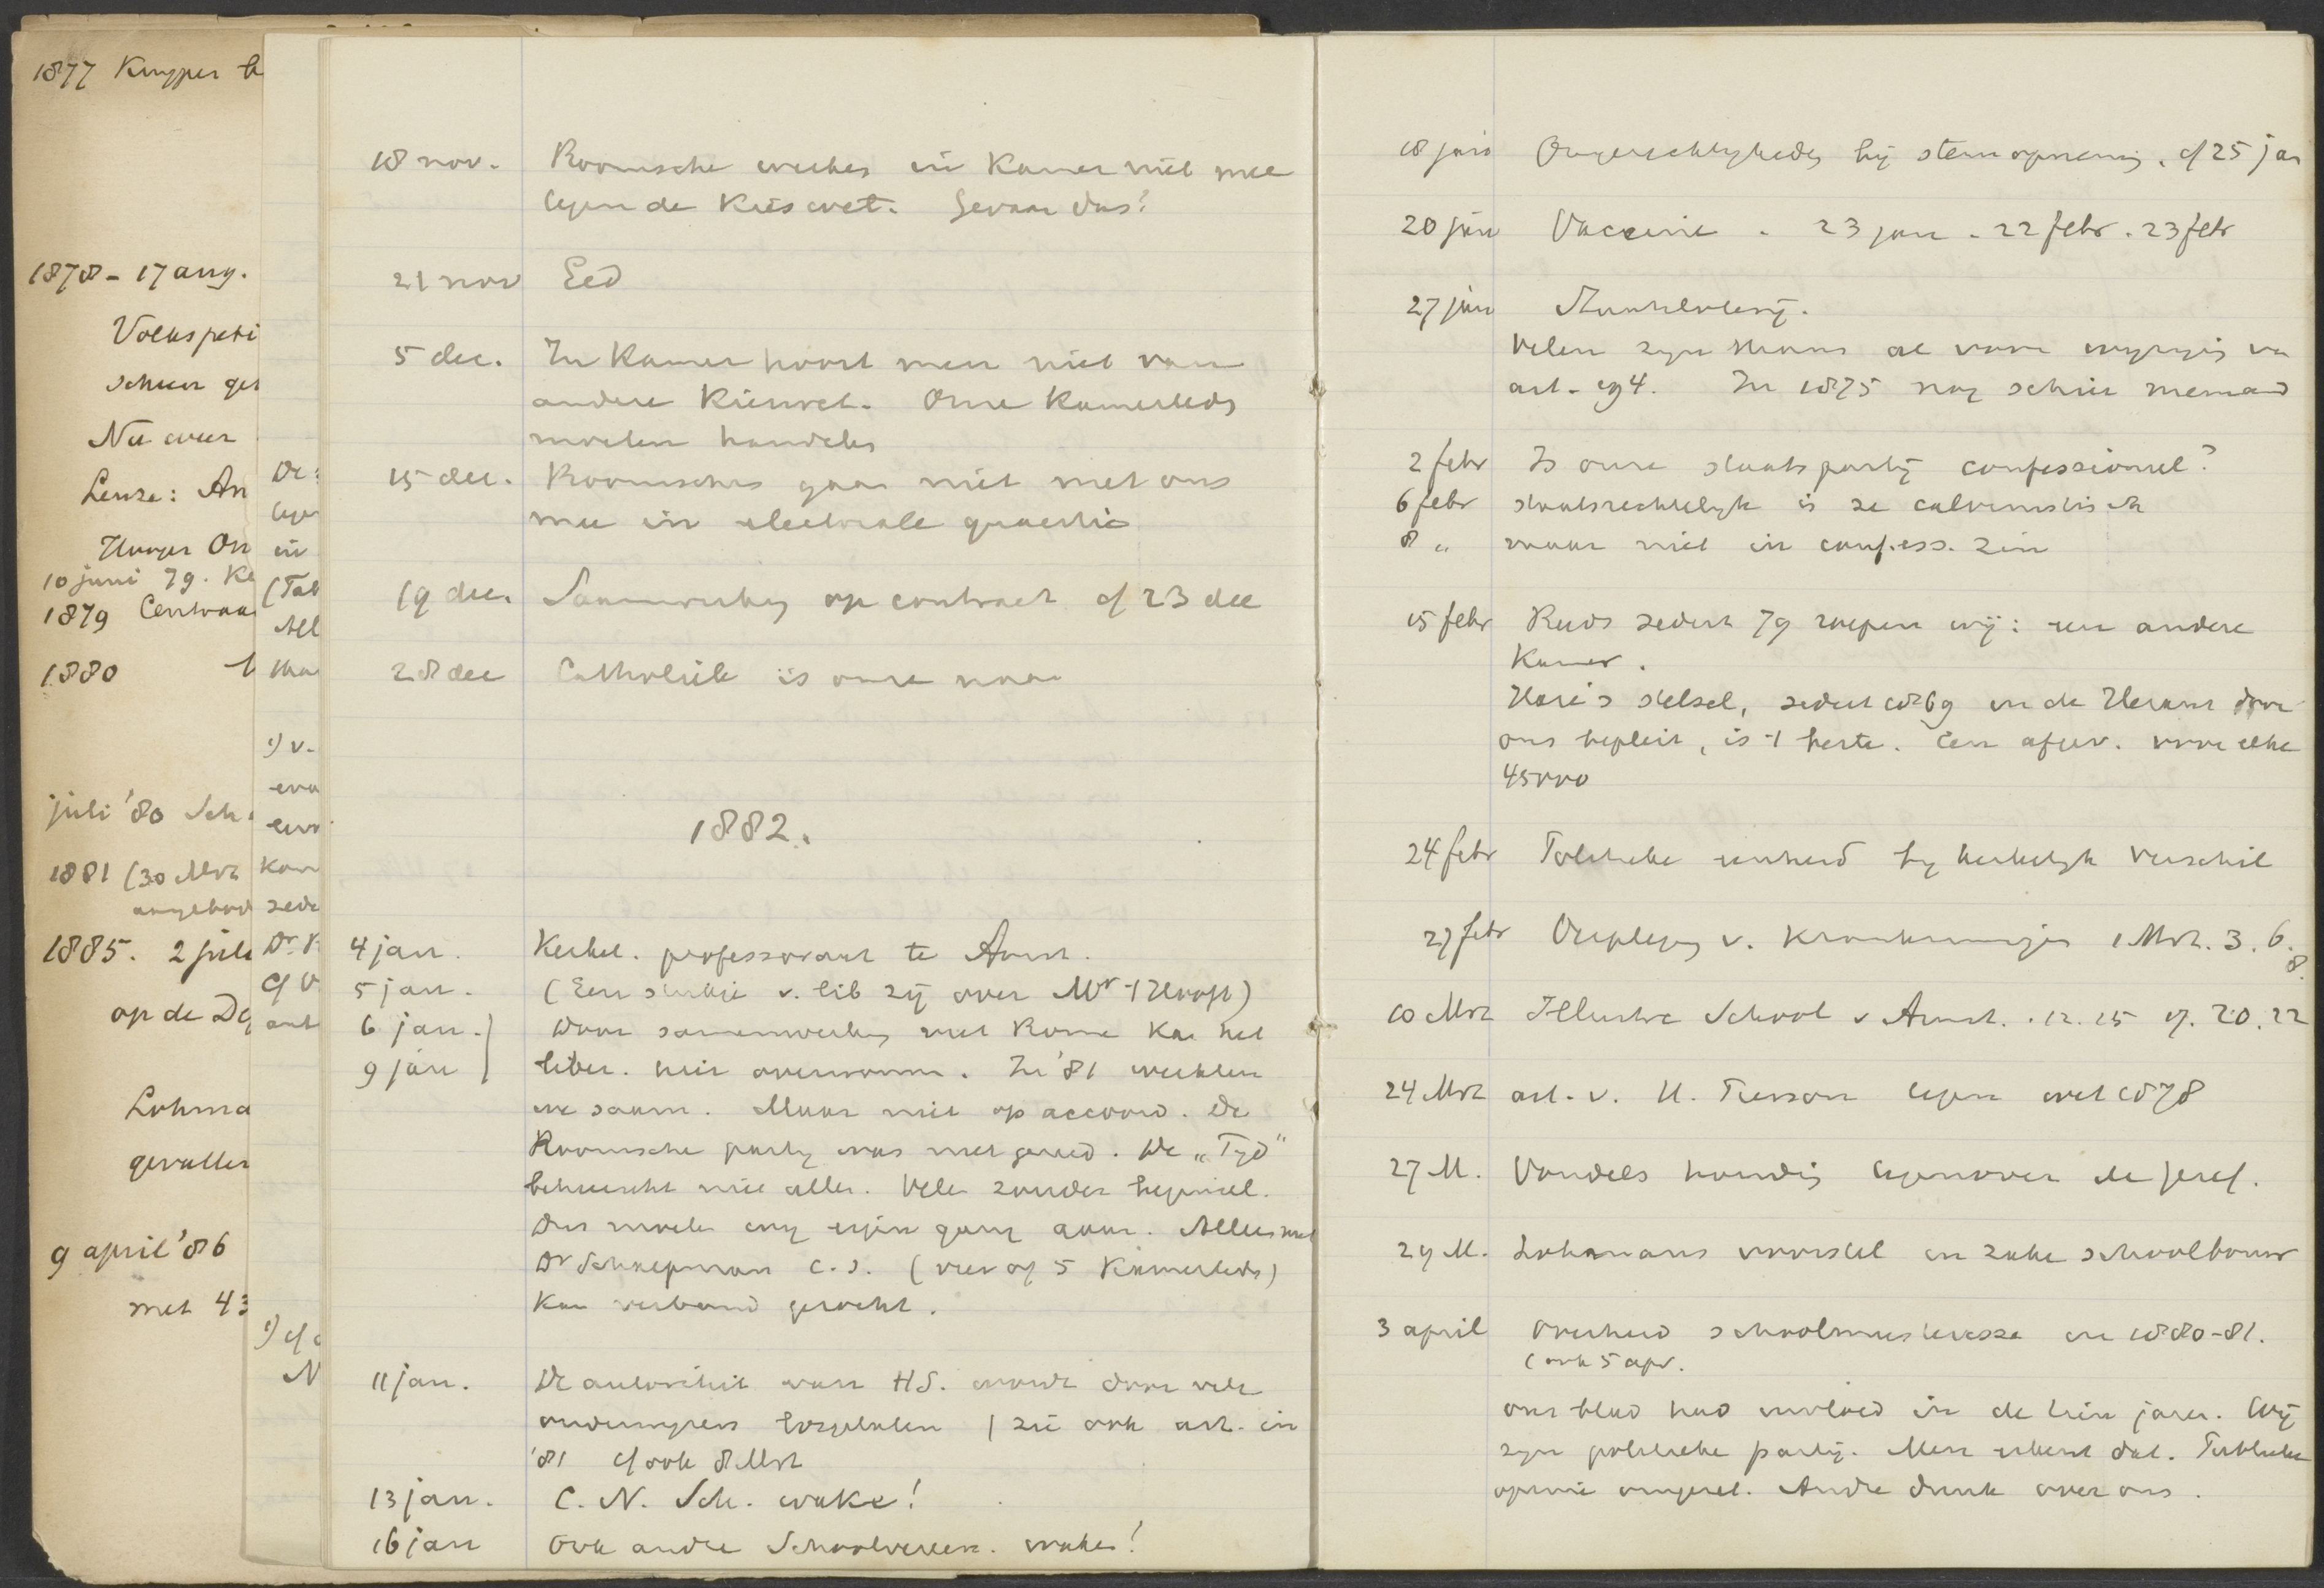 1877 Kuyper
1878 - 17 aug.
Volkspeti
Nu weer
10 juni 79.
1879 Centraa
1880
juli '80 Sch
1881 (30 Mrt
1885. 2 juli
op de De
Lohma
gevallen
9 april '86
met 43
18 nov. Roomsche werken in Kamer niet mee
tegen de Kieswet. Gevaar dus!
21 nov Eed
5 dec. In Kamer hoort men niet van
andere Kieswet. Onze Kamerleden
moeten handelen
15 dec. Roomschen gaan niet met ons
mee in electorale quaestie
19 dec. Saamwerking op contract cf 23 dec
28 dec Catholiek is onze naam
1882.
4 jan. Kerkel. professoraat te Amst.
5 jan. (Een stukje v. lib zij over Mr 't Hooft)
6 jan. Door samenwerking met Rome kan het
9 jan liber. niet overwonnen. In '81 werkten
we saam. Maar niet op accoord. De
Roomsche partij was niet gereed. De "Tijd"
beheerscht niet allen. Velen zonder beginsel.
Dus moeten wij eigen gang gaan. Alleen met
Dr Schaepman c.s. (vier of 5 Kamerleden)
kan verband gezocht.
11 jan. De autoriteit van H.S. wordt door vele
andermeer losgelaten (zie ook art. in
'81 cf ook 8 Mrt
13 jan. C. N. Sch. wake!
16 jan Ook andre Schoolvereen. waken!
18 jan Ongerechtigheden bij stemopneming. cf 25 jan
20 jan Vaccine. 23 jan. 22 febr. 23 febr
27 jan
Velen zijn thans al voor wijziging van
art. 194. In 1875 nog schier niemand
2 febr Is onze staatspartij confessioneel?
6 febr staatsrechtelijk is ze calvinistisch
8 " maar niet in confess. zin
15 febr Reeds sedert 79 roepen wij: een andere
Kamer.
Hare's stelsel, sedert 1869 in de Heraut door
ons bepleit, is 't beste. Een afgev. voor elke
45000
24 febr Politieke eenheid bij kerkelijk verschil
27 febr Verpleging v. Krankzinnigen 1 Mrt. 3. 6. 8.
10 Mrt Illustre School v Amst. . 12. 15 17. 20. 22
24 Mrt art. v. N. Pierson tegen wet 1878
27 M. Vondels houding tegenover de geref.
29 M. Lohmans voorstel in zake schoolbouw
3 april Overheid schoolmeesteresse in 1880-81.
(ook 5 apr.
ons blad had invloed in de tien jaren. Wij
zijn politieke partij. Men erkent dat. Publieke
opinie omgezet. Andre dunk over ons.